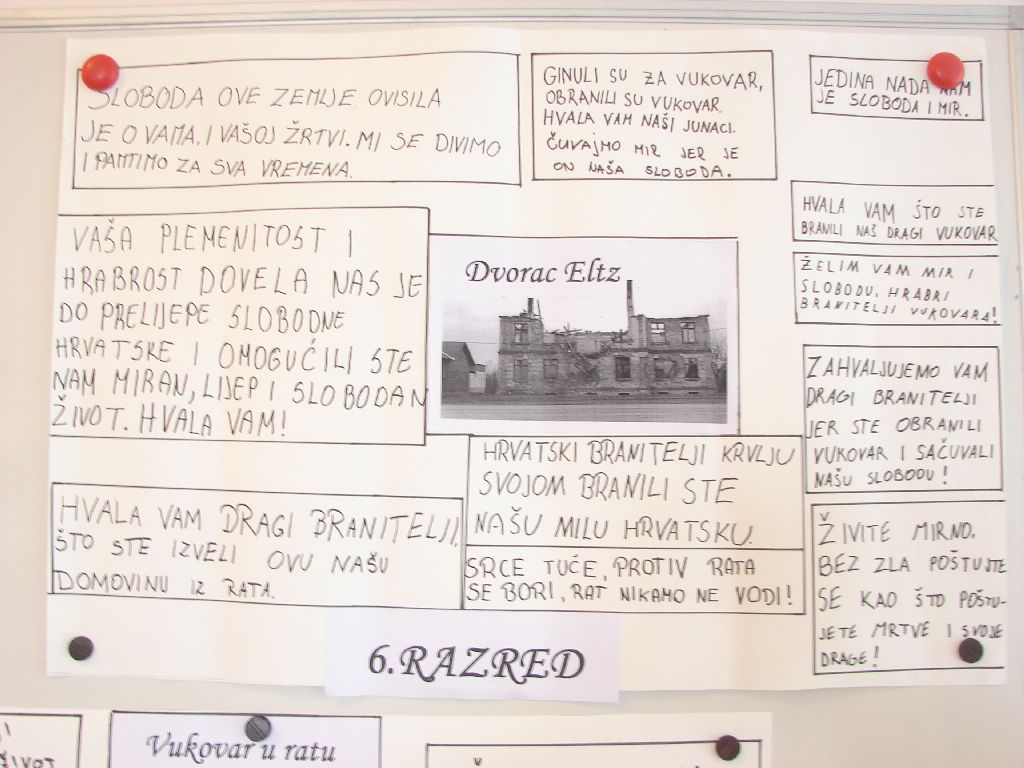 SLOBODA OVE ZEMLJE OVISILA
JE O VAMA, I VAŠOJ ŽRTVI. MI SE DIVIMO
I PAMTIMO ZA SVA VREMENA.
GINULI SU ZA VUKOVAR,
OBRANILI SU VUKOVAR.
HVALA VAM NAŠI JUNACI.
ČUVAJMO MIR JER JE
ON NAŠA SLOBODA.
JEDINA NADA NAM
JE SLOBODA I MIR.
HVALA VAM ŠTO STE
BRANILI NAŠ DRAGI VUKOVAR
ŽELIM VAM MIR I
SLOBODU, HRABRI
BRANITELJI VUKOVARA!
VAŠA PLEMENITOST I
HRABROST DOVELA NAS JE
DO PRELIJEPE SLOBODNE
HRVATSKE I OMOGUĆILI STE
NAM MIRAN, LIJEP I SLOBODAN
ŽIVOT. HVALA VAM!
Dvorac Eltz
ZAHVALJUJEMO VAM
DRAGI BRANITELJI
JER STE OBRANILI
VUKOVAR I SAČUVALI
NAŠU SLOBODU!
HRVATSKI BRANITELJI KRVLJU
SVOJOM BRANILI STE
NAŠU MILU HRVATSKU.
HVALA VAM DRAGI BRANITELJI,
ŠTO STE IZVELI OVU NAŠU
DOMOVINU IZ RATA.
SRCE TUĆE, PROTIV RATA
SE BORI, RAT NIKAMO NE VODI!
ŽIVITE MIRNO,
BEZ ZLA POŠTUJTE
SE KAO ŠTO POŠTU-
JETE MRTVE I SVOJE
DRAGE!
6.RAZRED
Vukovar u ratu